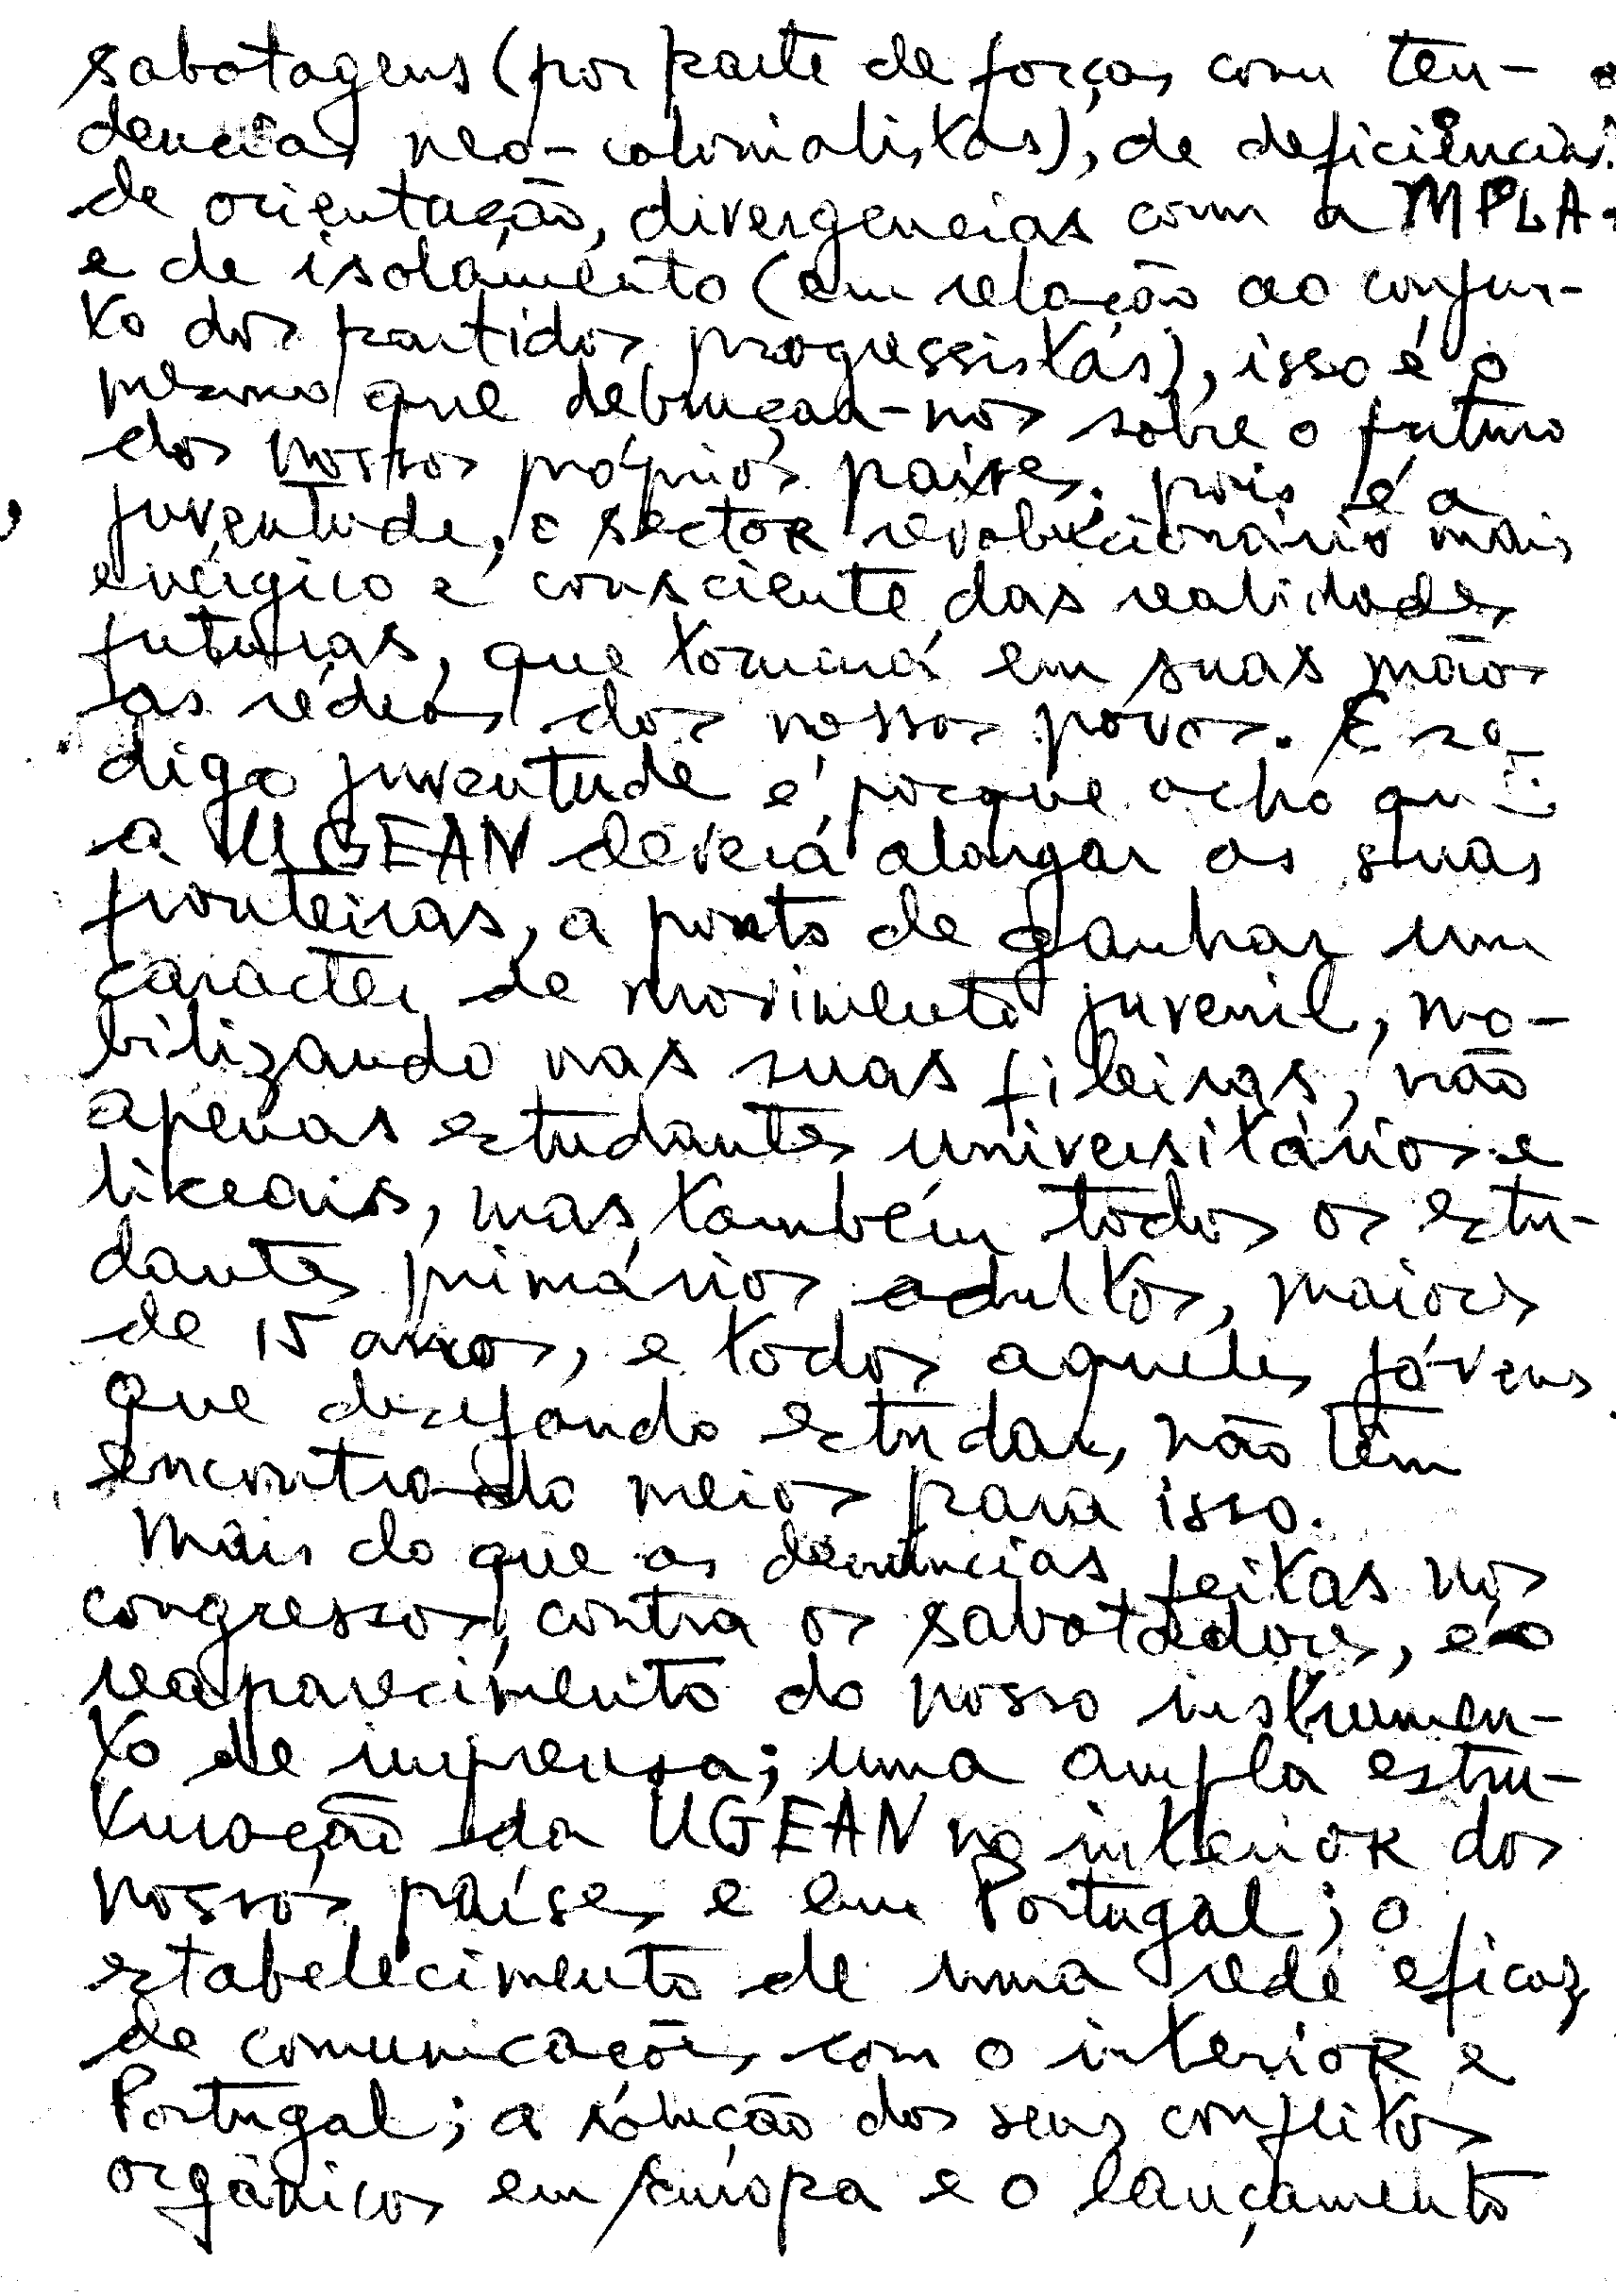 sabotagens (por parte de forças com ten-
dencias neo-colonialistas), de deficiências
de orientação, divergencias com a MPLA
e de isolamento (em relação ao conjun-
to dos partidos progressistas), isso é o
mesmo que debruçar-nos sobre o futuro
dos nossos próprios países, pois é a
juventude, o sector revolucionário mais
enérgico e consciente das realidades
futuras, que tomará em suas mãos
as rédeas dos nossos povos. E se
digo juventude é porque acho que
a UGEAN deverá alargar as suas
fronteiras, a ponto de ganhar um
caracter de movimento juvenil, mo-
bilizando nas suas fileiras, não
apenas estudantes universitários e
liceais, mas também todos os estu-
dantes primários adultos, maiores
de 15 anos, e todos aqueles jóvens
que desejando estudar, não têm
encontrado meios para isso.
Mais do que as denúncias feitas nos
congressos, contra os sabotadores, é o
reaparecimento do nosso instrumen-
to de imprensa; uma ampla estru-
turação da UGEAN no interior dos
nossos países e em Portugal; o
estabelecimento de uma rede eficaz
de comunicações com o interior e
Portugal; a solução dos seus conflitos
orgânicos em Europa e o lançamento